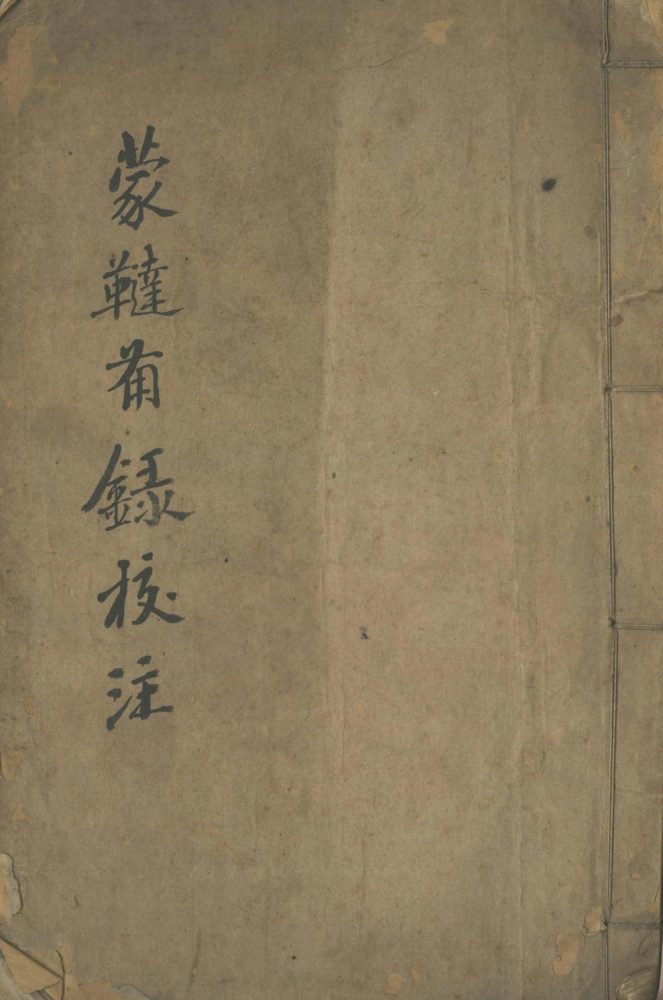 蒙韃俻錄校注